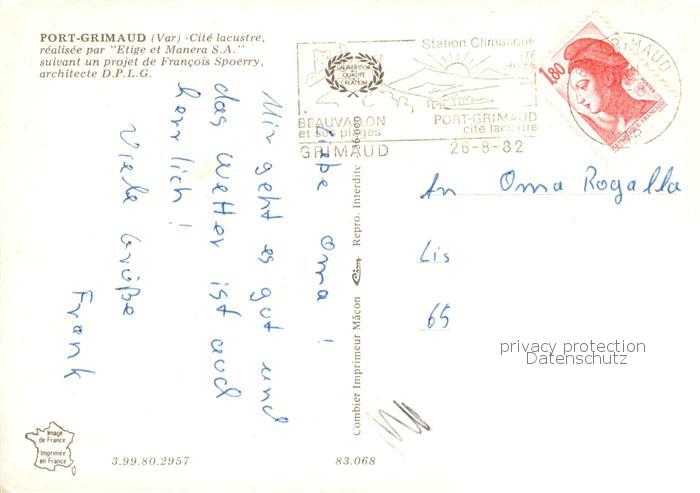 PORT-GRIMAUD (Var) -Cité lacustre,
réalisée par "Etige et Manera S.A."
suivant un projet de François Spoerry,
architecte D.P.L.G.
Station Climatique
ÉTÉ
HIVER
LAURIER D'OR
QUALITÉ
CRÉATION
BEAUVALLON
et ses plages
PORT-GRIMAUD
cité lacustre
GRIMAUD 26-8-82
GRIMAUD
1,80
POSTES
REPUBLIQUE FRANÇAISE
Liebe Oma!
Mir geht es gut und
das Wetter ist auch
herrlich!
Viele Grüße
Frank
An Oma Rogalla
Lis
65
privacy protection
Datenschutz
Combier Imprimeur Mâcon Cim Repro. Interdite
Image
de France
Imprimée
en France
3.99.80.2957
83.068